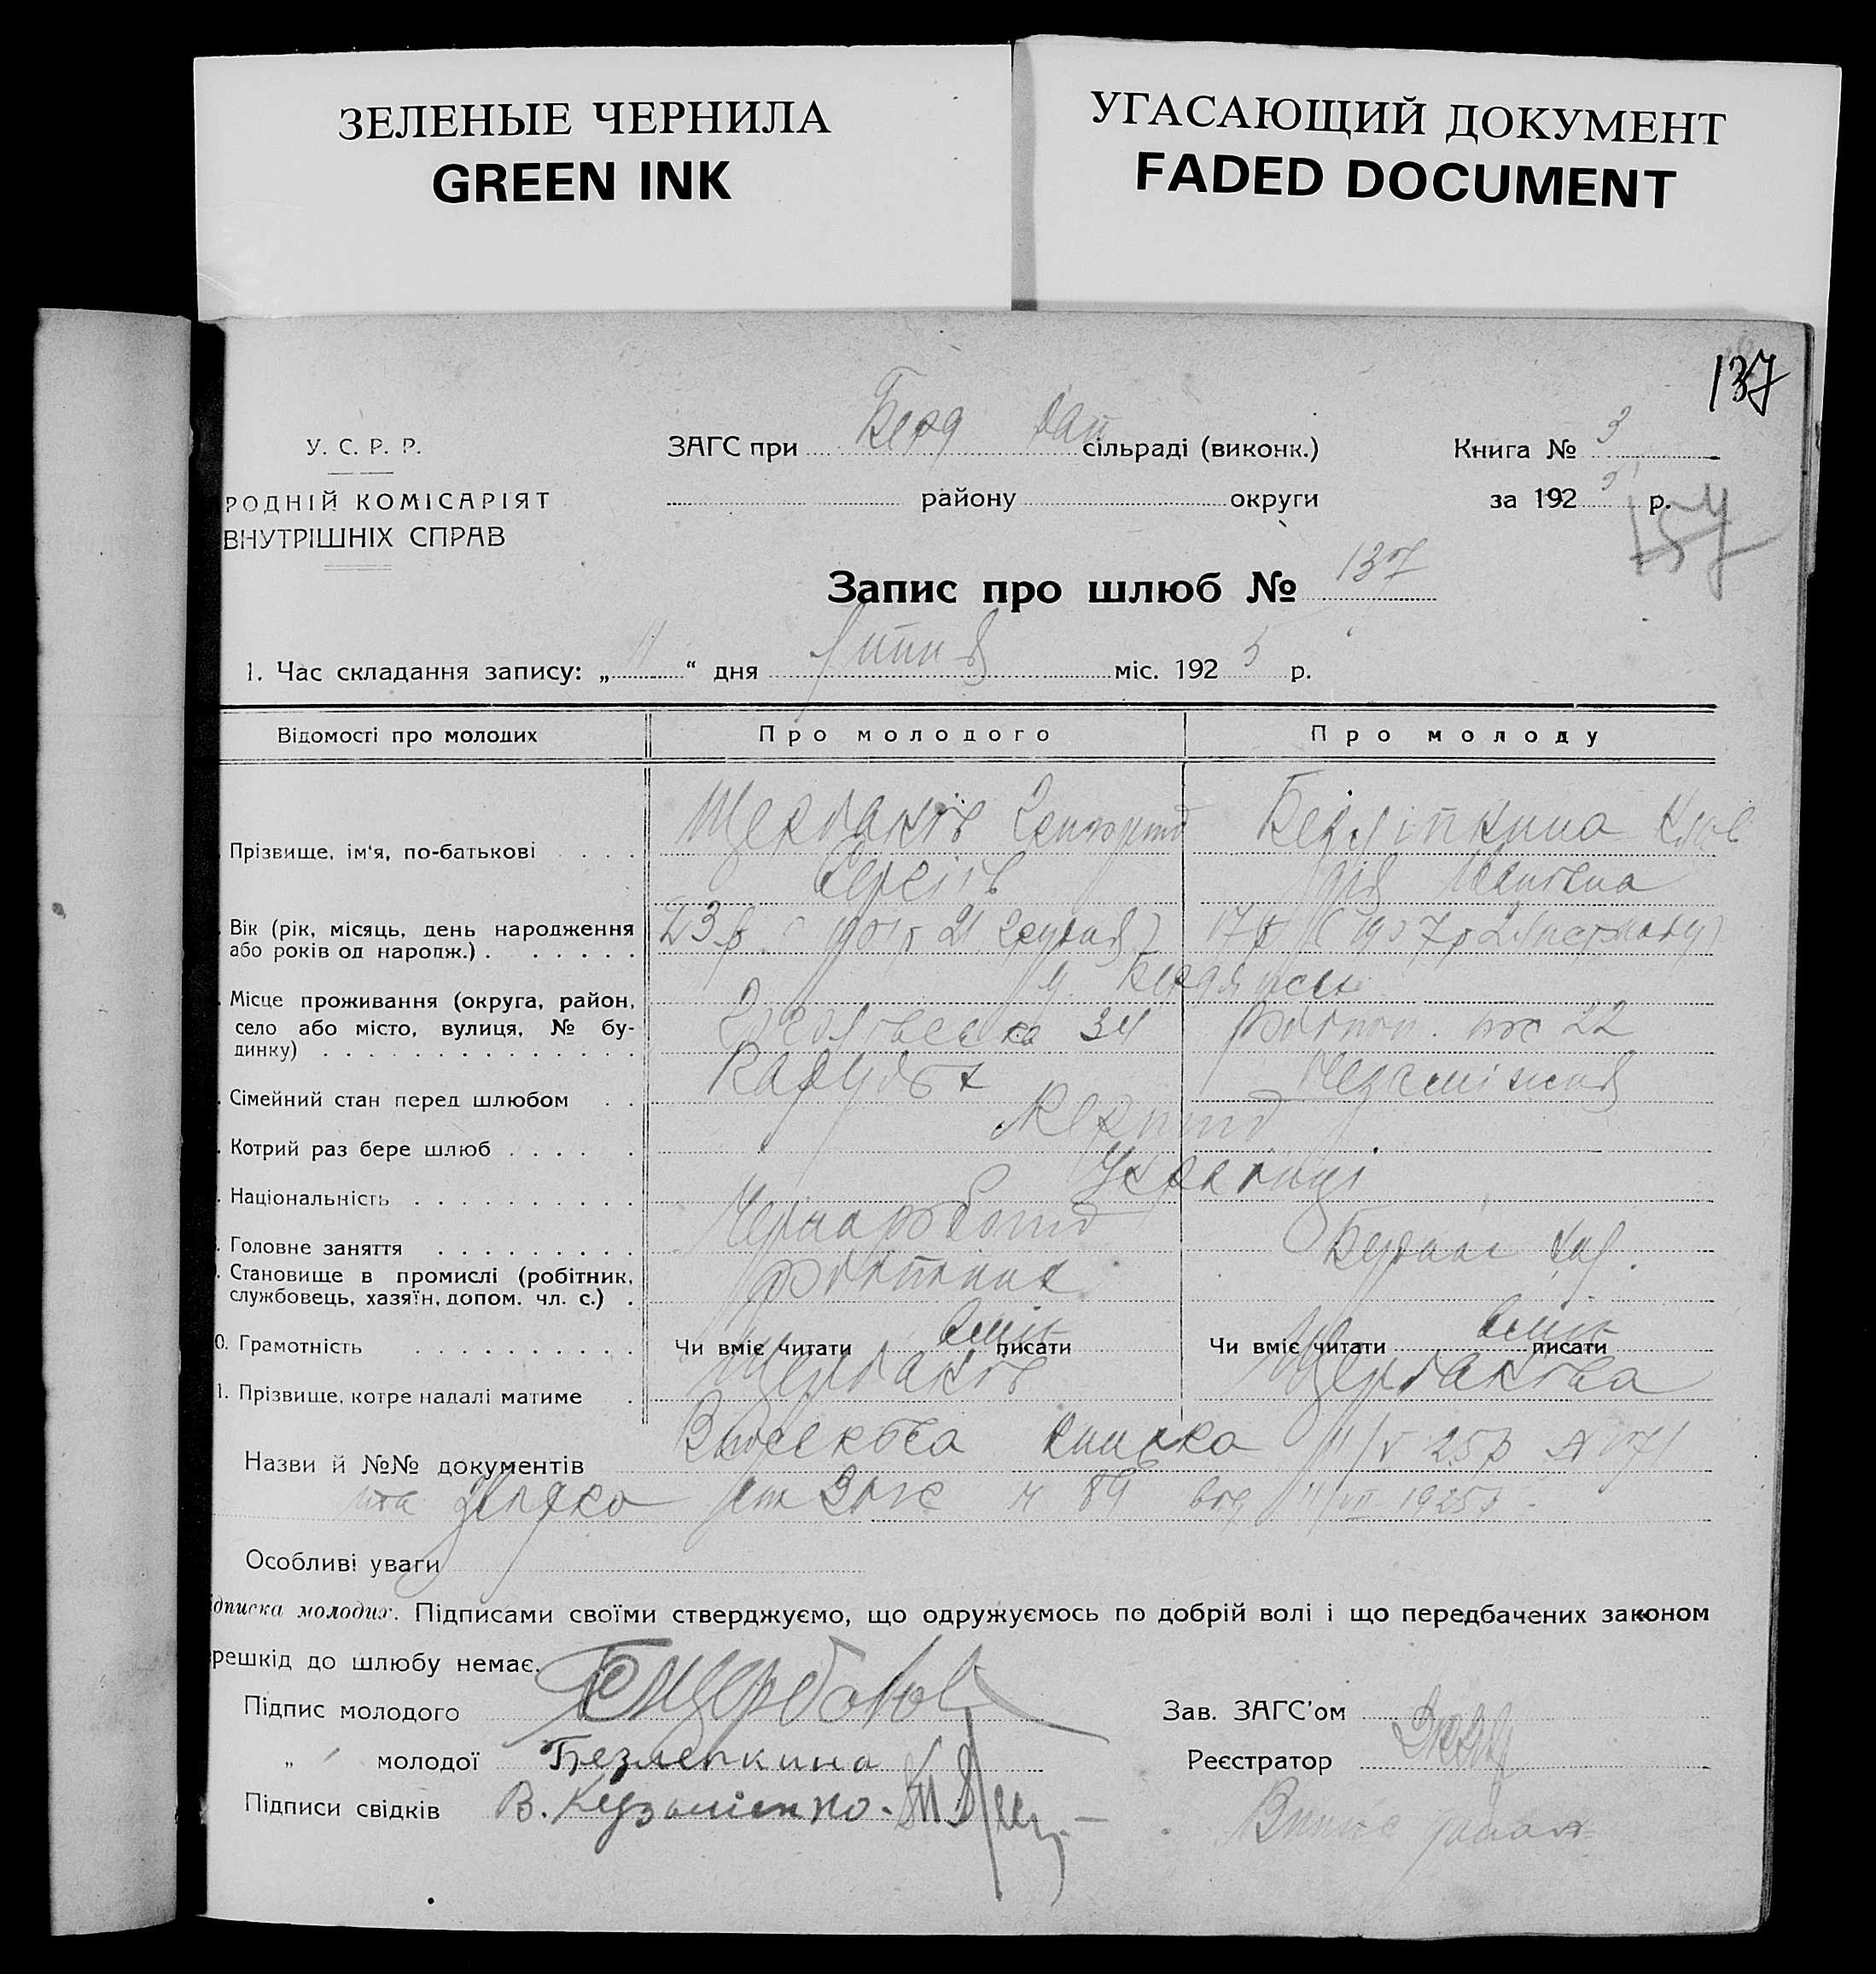 ЗЕЛЕНЫЕ ЧЕРНИЛА
GREEN INK
УГАСАЮЩИЙ ДОКУМЕНТ
FADED DOCUMENT
137
У. С. Р. Р.
РОДНІЙ КОМІСАРІЯТ
ВНУТРІШНІХ СПРАВ
ЗАГС при Берд сільраді (виконк.)
району округи
Книга № 3
за 192 5 р.
157
Запис про шлюб № 137
1. Час складання запису: „ 11 “ дня Липня міс. 192 5 р.
Відомості про молодих Про молодого Про молоду
Прізвище, ім'я, по-батькові . . . . Щербаків Григорій Безліпкина Клав
Сергіїв дія Іванівна
Вік (рік, місяць, день народження 23 р. ( 1901 р 21 Грудня ) 17 р ( 1907 р 2 Листопаду )
або років од народж.) . . . . . .
м. Бердянськ
Місце проживання (округа, район,
село або місто, вулиця, № бу- 34 22
динку) . . . . . . . . . . . . . .
Сімейний стан перед шлюбом . . Парубок Незаміжня
Котрий раз бере шлюб . . . . . Перший
Національність . . . . . . . . . . Українці
Головне заняття . . . . . . . . . Чернороб
Становище в промислі (робітник, робітник
службовець, хазяїн, допом. чл. с.) .
0. Грамотність . . . . . . . . . . Чи вміє читати вміє писати Чи вміє читати вміє писати
1. Прізвище, котре надалі матиме . Щербаків Щербаківа
Назви й №№ документів книжка 11/V 25р
та 89 від 11/VII 1925р.
Особливі уваги
ідписка молодих. Підписами своїми стверджуємо, що одружуємось по добрій волі і що передбачених законом
решкід до шлюбу немає.
Підпис молодого Г Щербаков
„ молодої Безлепкина
Підписи свідків В. Кузьменко.
Зав. ЗАГС'ом
Реєстратор